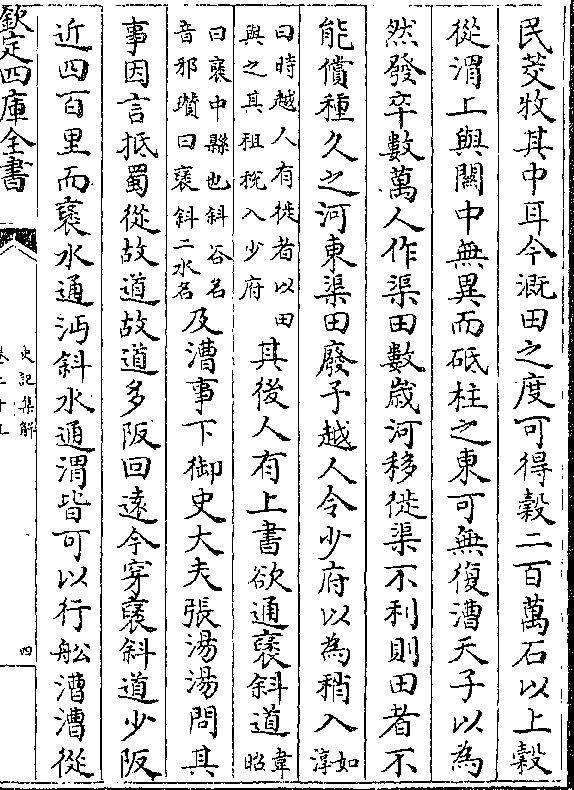 民茭牧其中耳今溉田之度可得穀二百萬石以上穀
從渭上與關中無異而砥柱之東可無復漕天子以為
然發卒數萬人作渠田數歲河移徙渠不利則田者不
能償種久之河東渠田廢予越人令少府以為稍入如淳
曰時越人有徙者以田
與之其租稅入少府
其後人有上書欲通襃斜道韋昭
曰襃中縣也斜谷名
音邪瓚曰襃斜二水名
及漕事下御史大夫張湯湯問其
事因言抵蜀從故道故道多阪回遠今穿襃斜道少阪
近四百里而襃水通沔斜水通渭皆可以行舩漕漕從
欽定四庫全書
史記集解
卷二十九
四